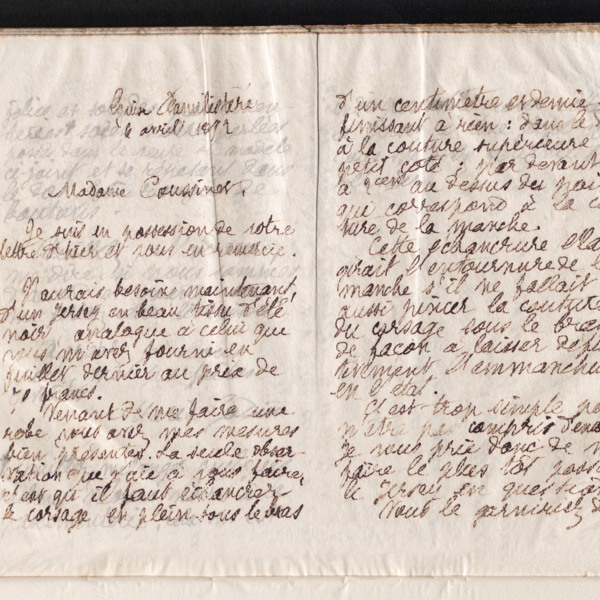 Guise Familistère
6 avril 1892
Madame Coussinet.
Je suis en possession de votre
lettre d'hier et vous en remercie.
J'aurais besoin maintenant,
d'un jersey en beau tissu d'été
noir analogue à celui que
vous m'avez fourni en
juillet dernier au prix de
70 francs.
Venant de me faire une
robe vous avez mes mesures
bien présentes. La seule obser-
vation que j'aie à vous faire,
c'est qu'il faut échancrer
le corsage en plein sous le bras
d'un centimètre et demie
finissant à rien : dans le d
à la couture supérieure
petit côté ; par devant
à rien au dessus du poi
qui correspond à la co
ture de la manche.
Cette échancrure éla
girait l'entournure de l
manche s'il ne fallait
aussi pincer la couture
du corsage sous le bras
de façon à laisser défi
nitivement l'emmanchu
en l'état.
C'est trop simple po
n'être pas compris d'em
je vous prie donc de m
faire le plus tôt possi
le jersey en question
Vous le garnirez d